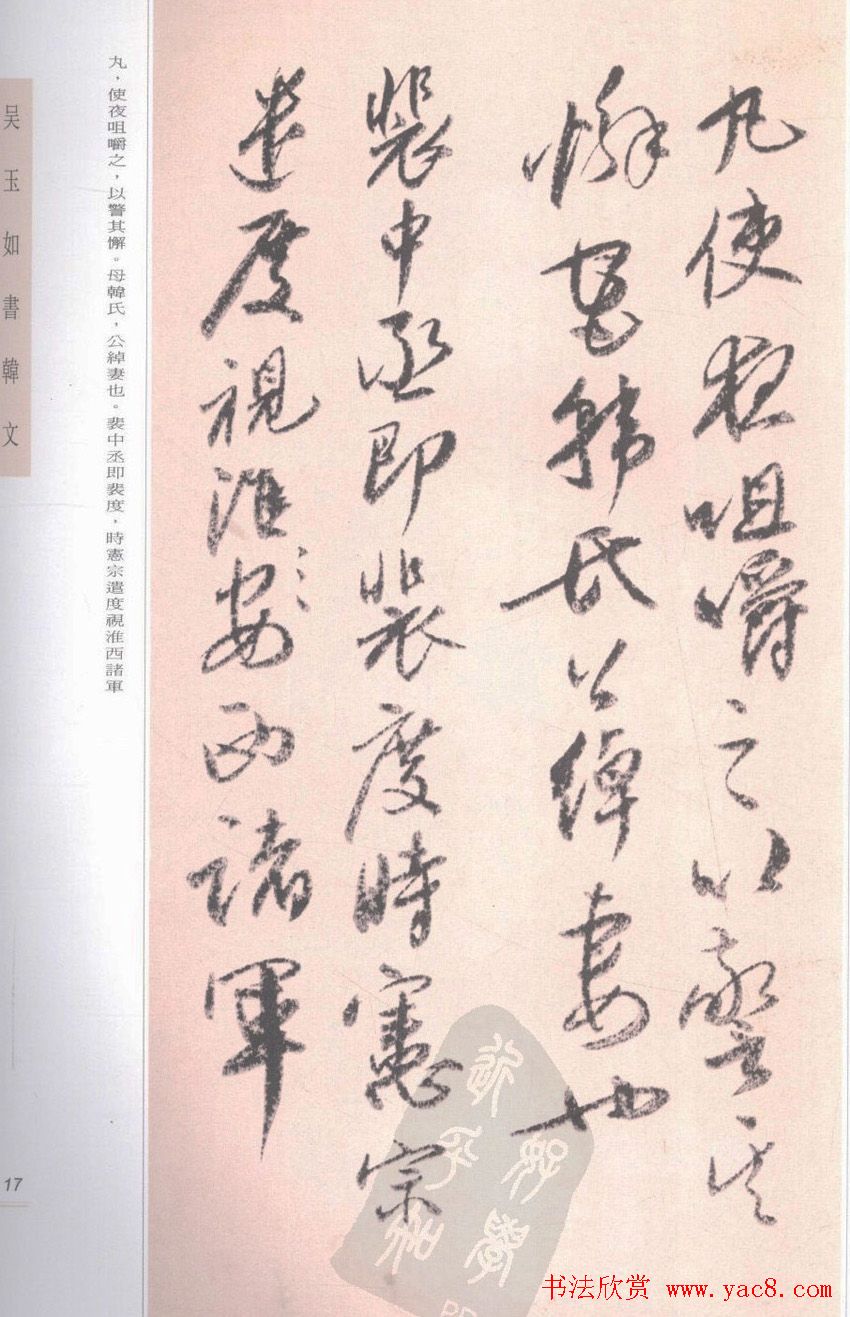 丸使夜咀嚼之以警其
懈母韓氏公綽妻也
裴中丞即裴度時憲宗
遣度視淮安西諸軍
丸，使夜咀嚼之，以警其懈。母韓氏，公綽妻也。裴中丞即裴度，時憲宗遣度視淮西諸軍
吴玉如書韓文
17
书法欣赏 www.yac8.com